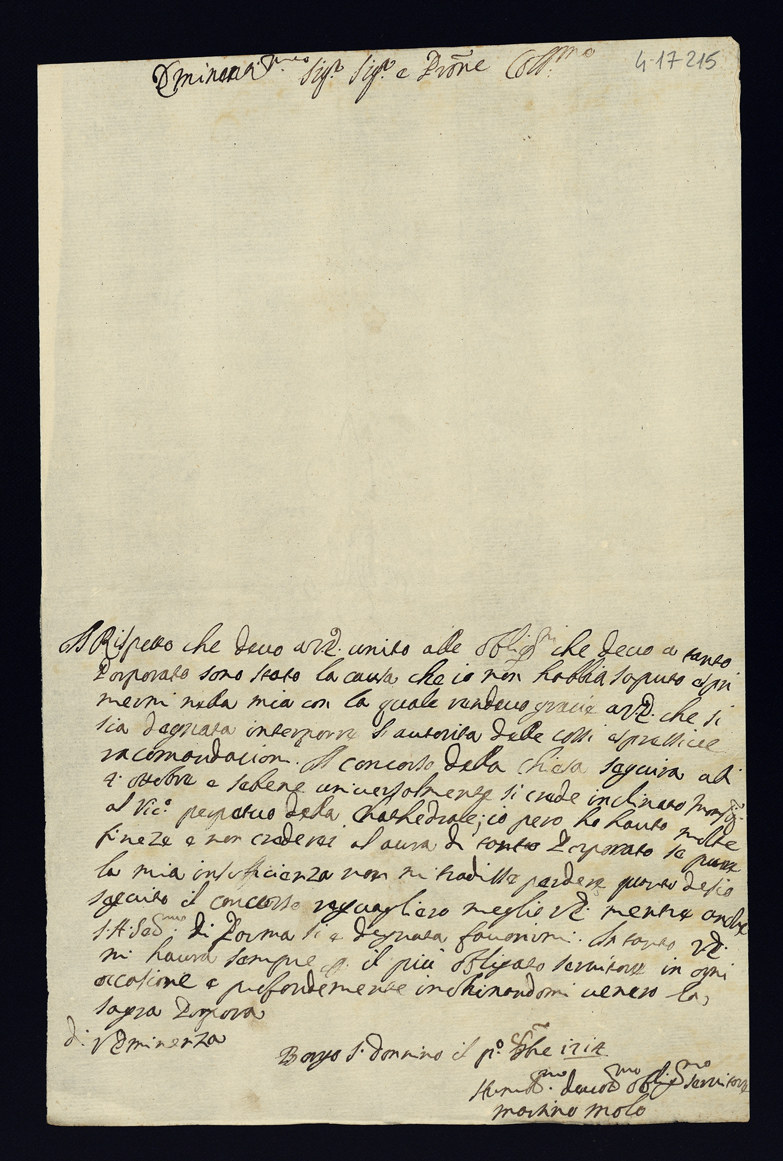 Eminen.mo Sig.r Sig.r e Prõne Coll.mo
4-17-215
Il Rispetto che devo a V.E. unito alle oblig.ni che devo a tanto
Porporato sono stato la causa che io non habbia saputo espri
mermi nella mia con la quale rendevo gracie a V.E. che si
sia degnata interporre l'autorita delle cosi espressive
racomandacioni. Il concorso della chiesa seguira ali
4 ottobre e sebene universalmente si crede inclinato Monsig.r
al Vic.o perpetuo della Cathedrale, io pero ho hauto molte
fineze e non crederei al aura di tanto Porporato se pure
la mia insufficienza non mi tradisse perdere
seguito il concorso raguagliero meglio V.E. mentre anche
S.A. Ser.ma di Parma si e degnata favorirmi. In tanto V.E.
mi haura sempre p. il più obligato servitore in ogni
occasione e profondemente inchinandomi venero la
sagra Porpora
di V. Eminenza
Borgo S. Donnino il p.o 1714
Humil.mo devot.mo oblig.mo servitore
Martino Molo